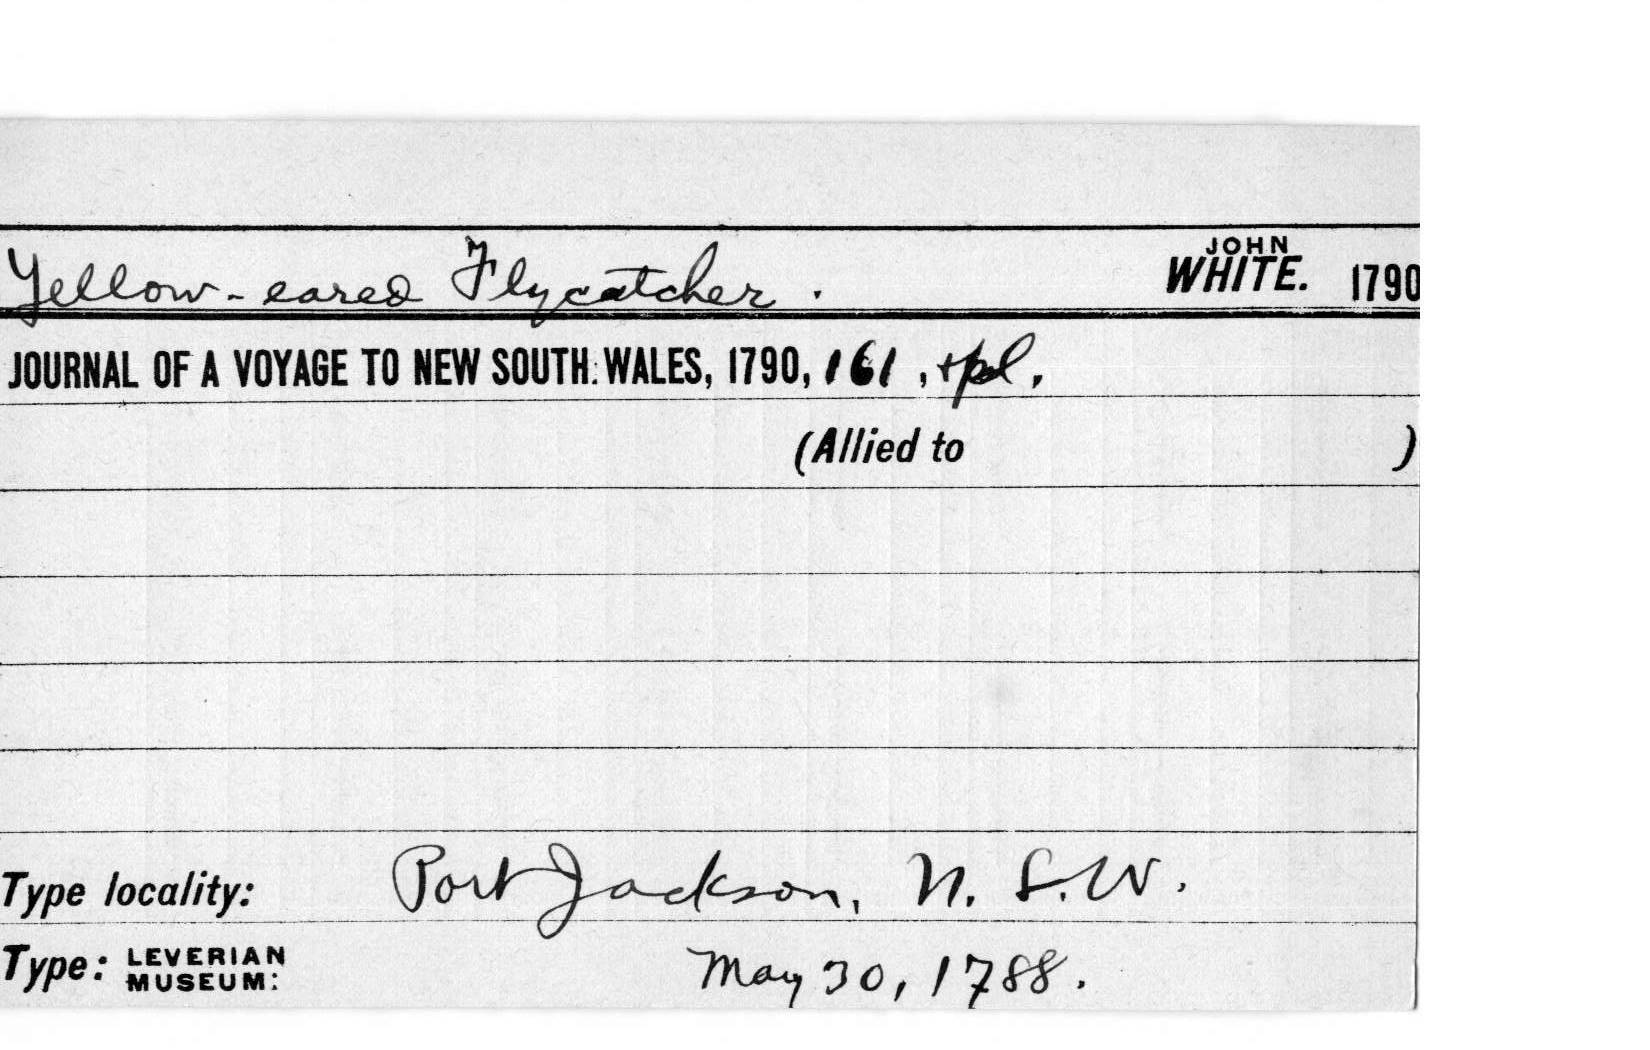 Yellow-eared Flycatcher. JOHN WHITE. 1790
JOURNAL OF A VOYAGE TO NEW SOUTH WALES, 1790, 161, +pl.
(Allied to )
Type locality: Port Jackson, N.S.W.
Type: LEVERIAN MUSEUM: May 30, 1788.